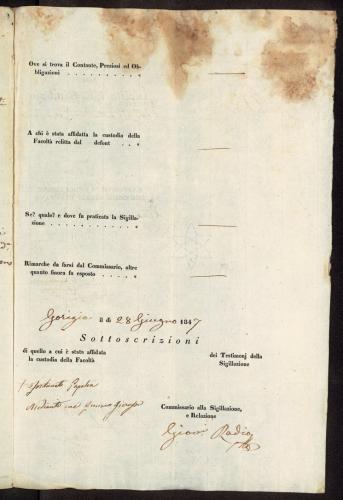 Ove si trova il Contante, Preziosi ed Ob-
bligazioni . . . . . . . . . . . «
A chi è stata affidata la custodia della
Facoltà relitta dal defont . . «
Se? quale? e dove fu praticata la Sigilla-
zione . . . . . . . . . . . . «
Rimarche da farsi dal Commissario, oltre
quanto finora fu esposto . . . . «
Gorizia li di 28 Giugno 1847
Sottoscrizioni
di quello a cui è stata affidata
la custodia della Facoltà
dei Testimonj della
Sigillazione
Commissario alla Sigillazione,
e Relazione